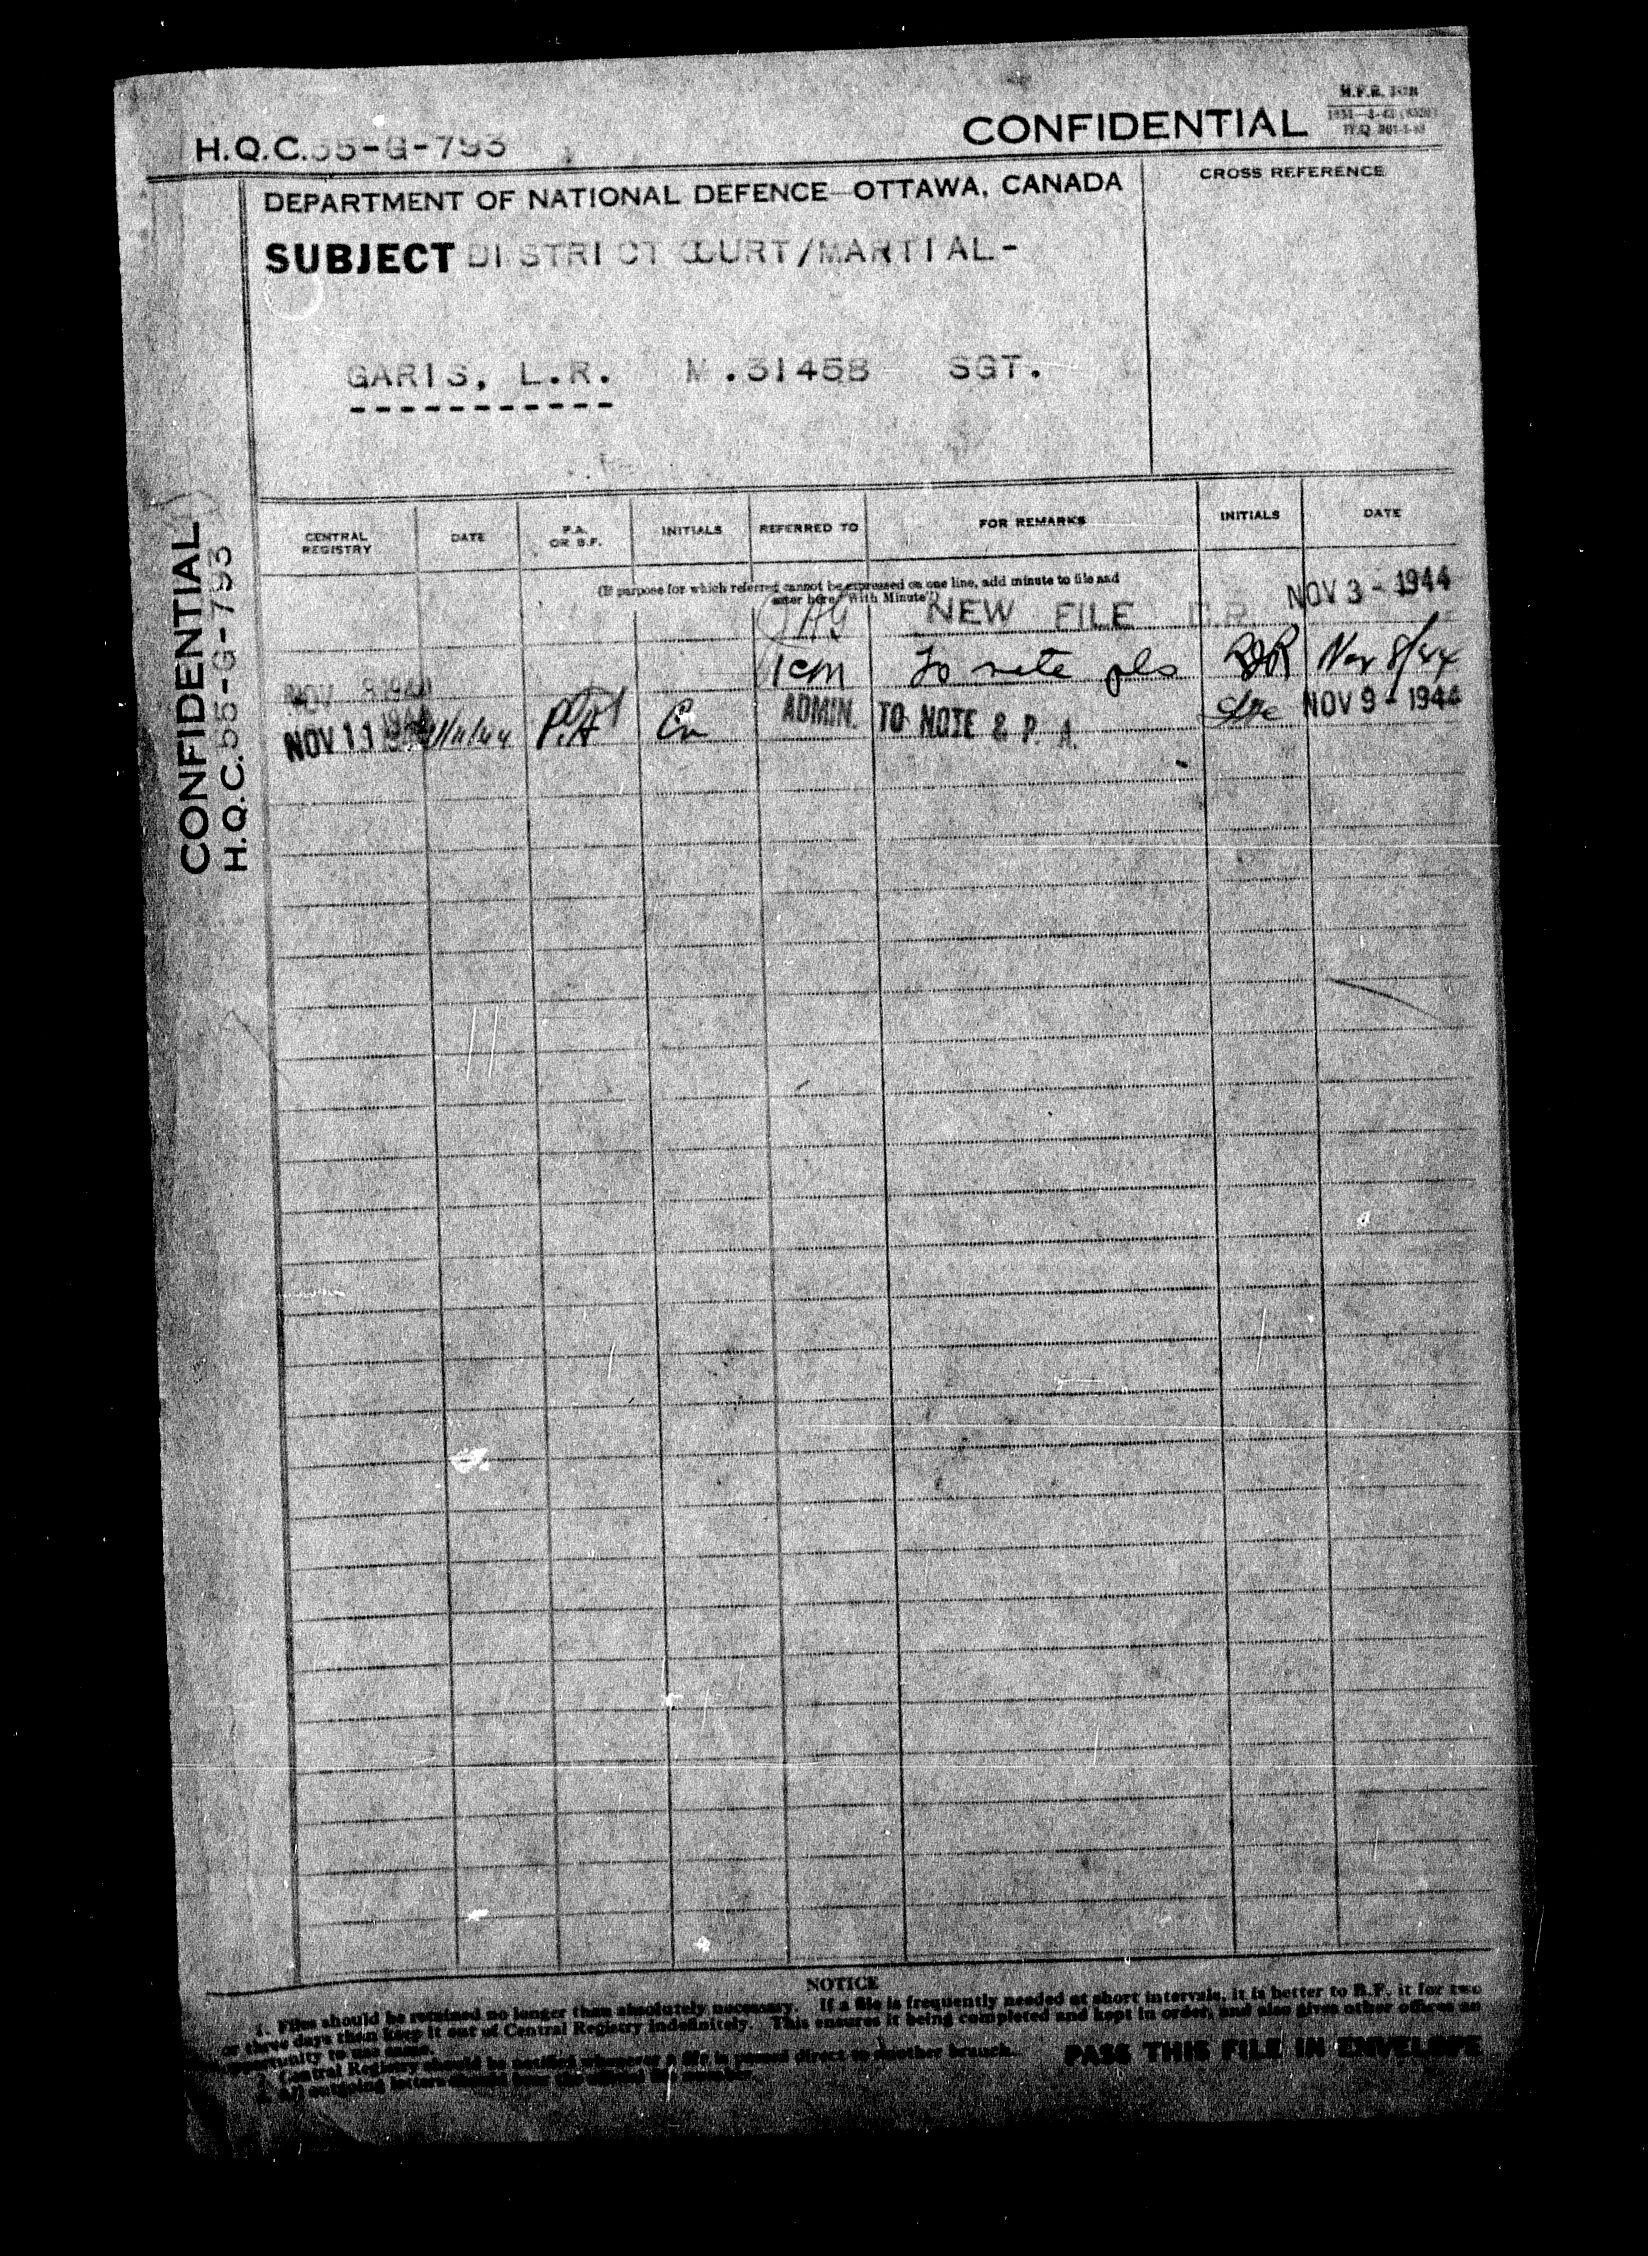 H.Q.C. 55-G-793
CONFIDENTIAL
DEPARTMENT OF NATIONAL DEFENCE—OTTAWA, CANADA
CROSS REFERENCE
SUBJECT DISTRICT COURT/MARTIAL-
GARIS, L.R. M.31458 SGT.
-----------
CONFIDENTIAL
H.Q.C. 55-G-793
CENTRAL REGISTRY
DATE
P.A. OR B.F.
INITIALS
REFERRED TO
FOR REMARKS
INITIALS
DATE
(If purpose for which referred cannot be expressed on one line, add minute to file and
enter here "With Minute")
JAG NEW FILE C.R. NOV 3 - 1944
NOV 8 1944 To note pls Nov 8/44
NOV 11 1944 11/11/44 P.A. ADMIN. TO NOTE & P. A. NOV 9 - 1944
NOTICE
1. Files should be retained no longer than absolutely necessary. If a file is frequently needed at short intervals, it is better to B.F. it for two
or three days than keep it out of Central Registry indefinitely. This ensures it being completed and kept in order, and also gives other offices an
opportunity to use same.
2. Central Registry should be notified whenever a file is passed direct to another branch.
PASS THIS FILE IN ENVELOPE